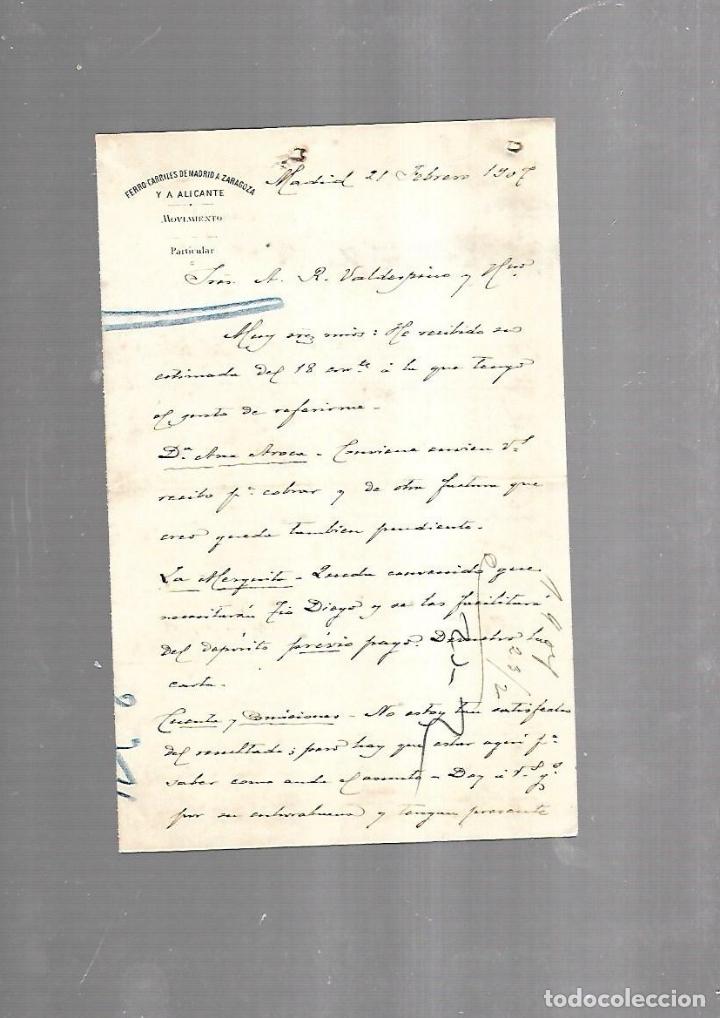 FERRO-CARRILES DE MADRID A ZARAGOZA
Y A ALICANTE
MOVIMIENTO
Particular
Madrid 21 Febrero 1907
Sres. A. R. Valdespino y Hno.
Muy Sres mios: He recibido su
estimada del 18 corrte á la que tengo
el gusto de referirme.
Dª Ana Aroca - Conviene envien Vs
recibo pª cobrar y de otra factura que
creo queda tambien pendiente.
La - Queda convenido que
necesitarán Tio Diego y se las facilitará
del depósito prévio pago. Devuelvo la
carta.
Cuenta y Comisiones - No estoy tan satisfecho
del resultado; pero hay que estar aquí pª
saber como anda el asunto - Doy á Vs
por su enhorabuena y tengan presente
23/2
todocoleccion
todocoleccion.net